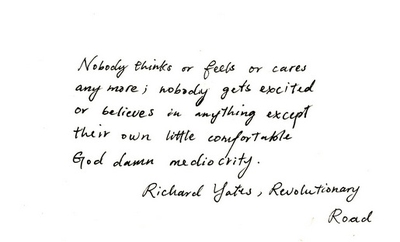 Nobody thinks or feels or cares
any more; nobody gets excited
or believes in anything except
their own little comfortable
God damn mediocrity.
Richard Yates, Revolutionary
Road